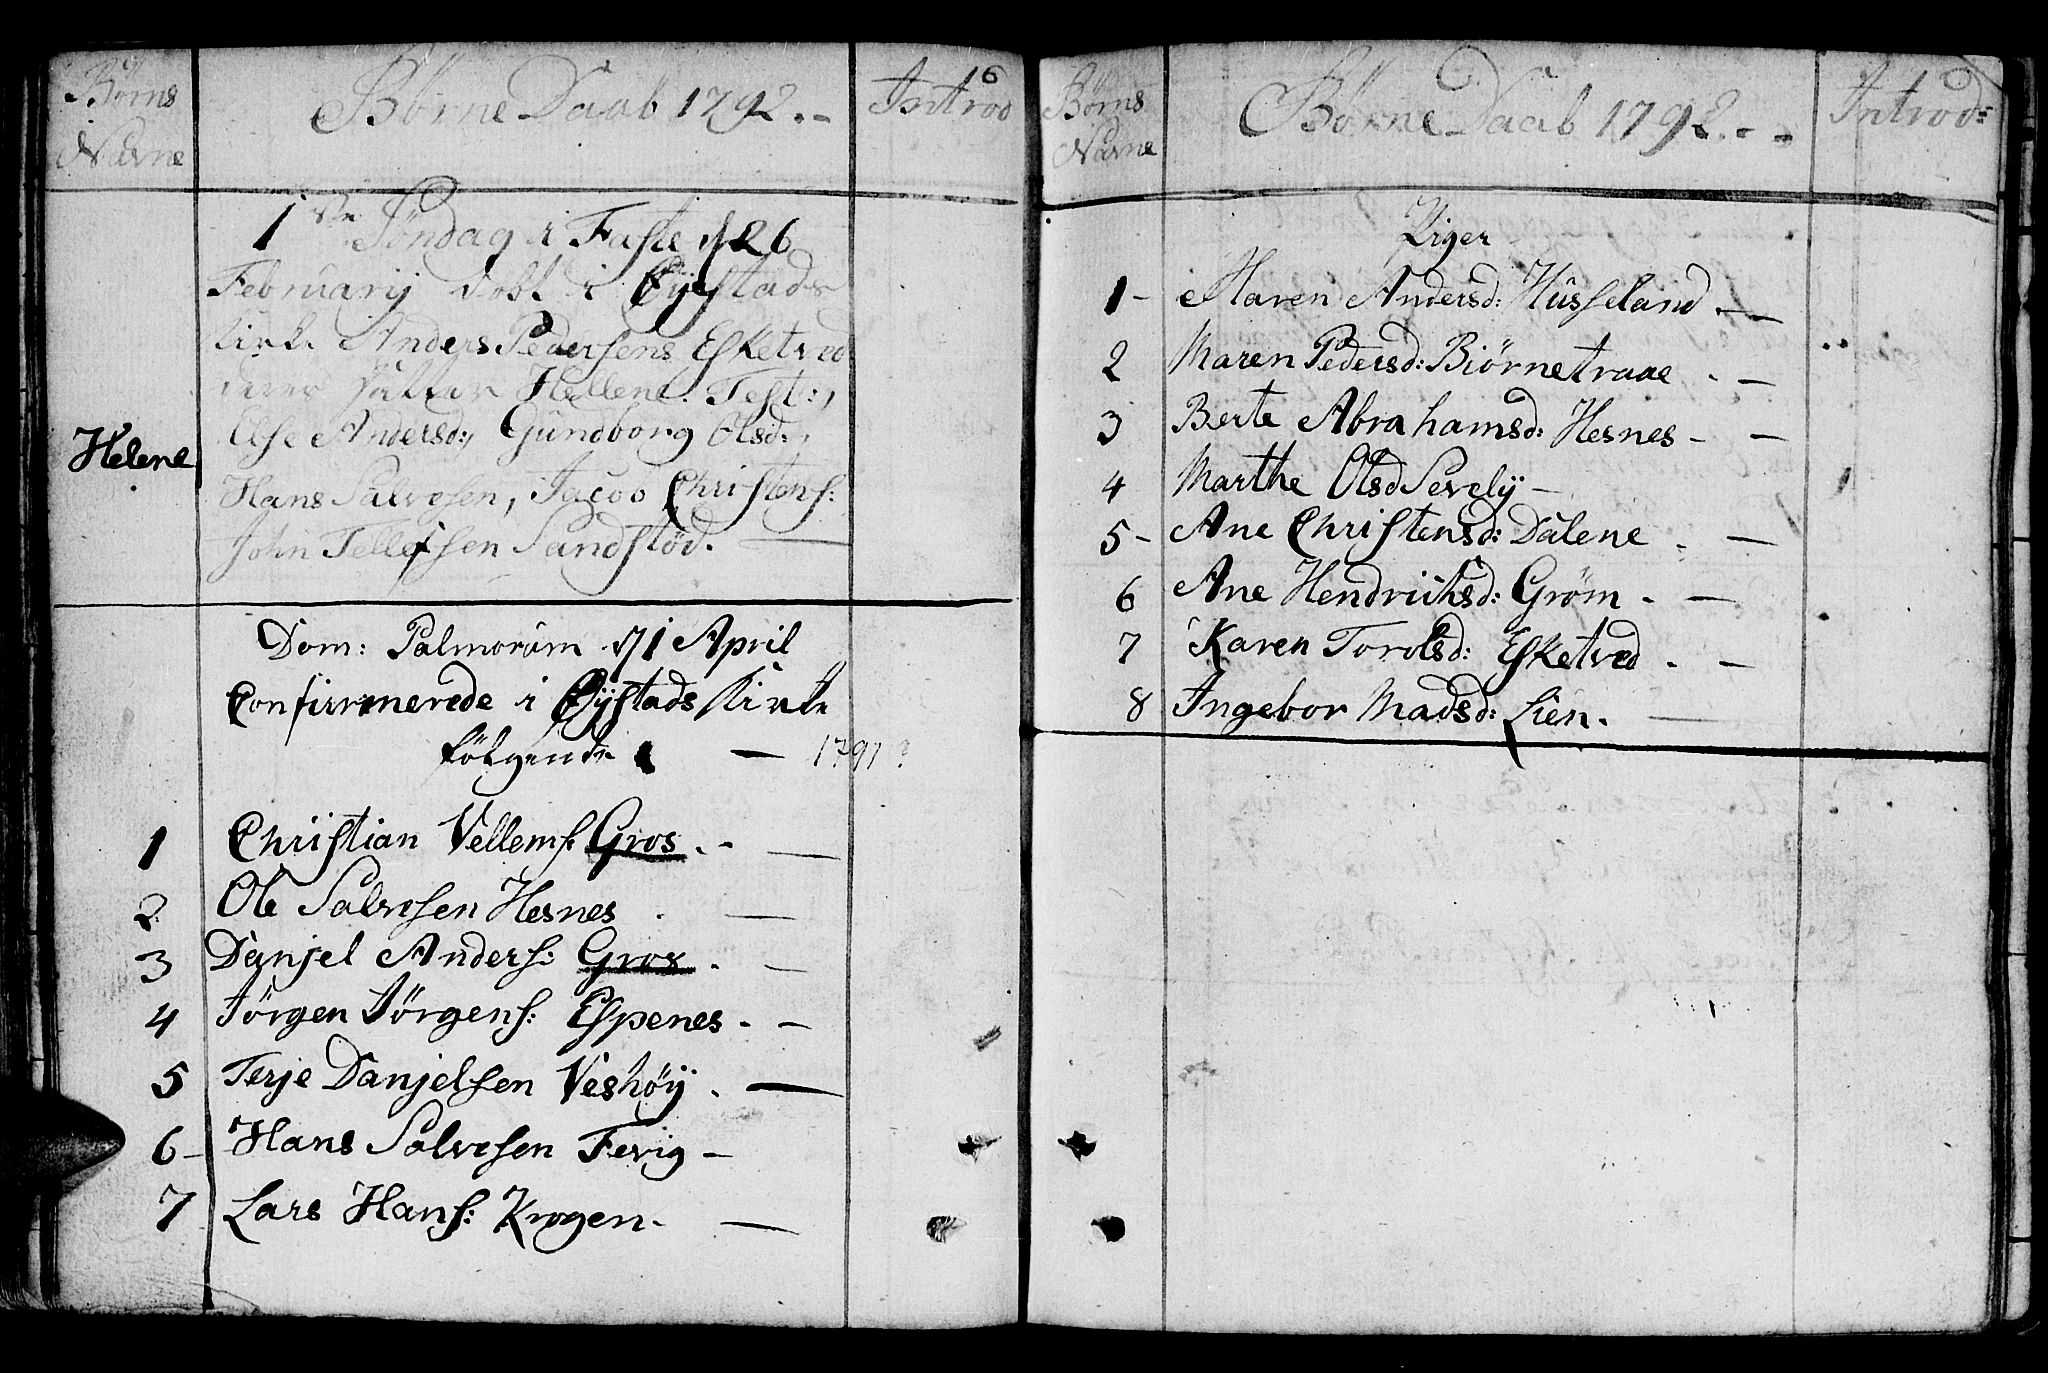 16
Børns
Navne
Børne Daab 1792. -
Introd
1ste Søndag i Faste d 26
Februarij døbt i Øyestads
Kirke Anders Pedersens Esketved
deres Datter Hellene. Test:,
Else Andersd:, Gundborg Olsd:,
Helene
Hans Salvesen, Jacob Christens:
John Tellefsen Sandstød.
Dom: Palmorum d/1 April
Confirmerede i Øyestads Kirke
følgende — 1791?
1 Christian Vellems: Gros. - —
2 Ole Salvesen Hesnes . —
3 Danjel Anders: Gros . —
4 Jörgen Jörgens: Espenes. —
5 Terje Danjelsen Veshöÿ . —
6- Hans Salvesen Fevig —
7 Lars Hans: Krogen. —
Børns
Navne
Børne Daab 1792. - -
Introd:
Piger
1- Maren Andersd: Husseland. —
2 Maren Pedersd: Biörnetraae . —
3 Berte Abrahamsd: Hesnes - —
4 Marthe Olsd Sevelÿ —
5- Ane Christensd: Dalene . —
6 Ane Hendrichsd: Gröm . —
7 Karen Torolsd: Esketved . —
8 Ingebor Madsd: Lien. —